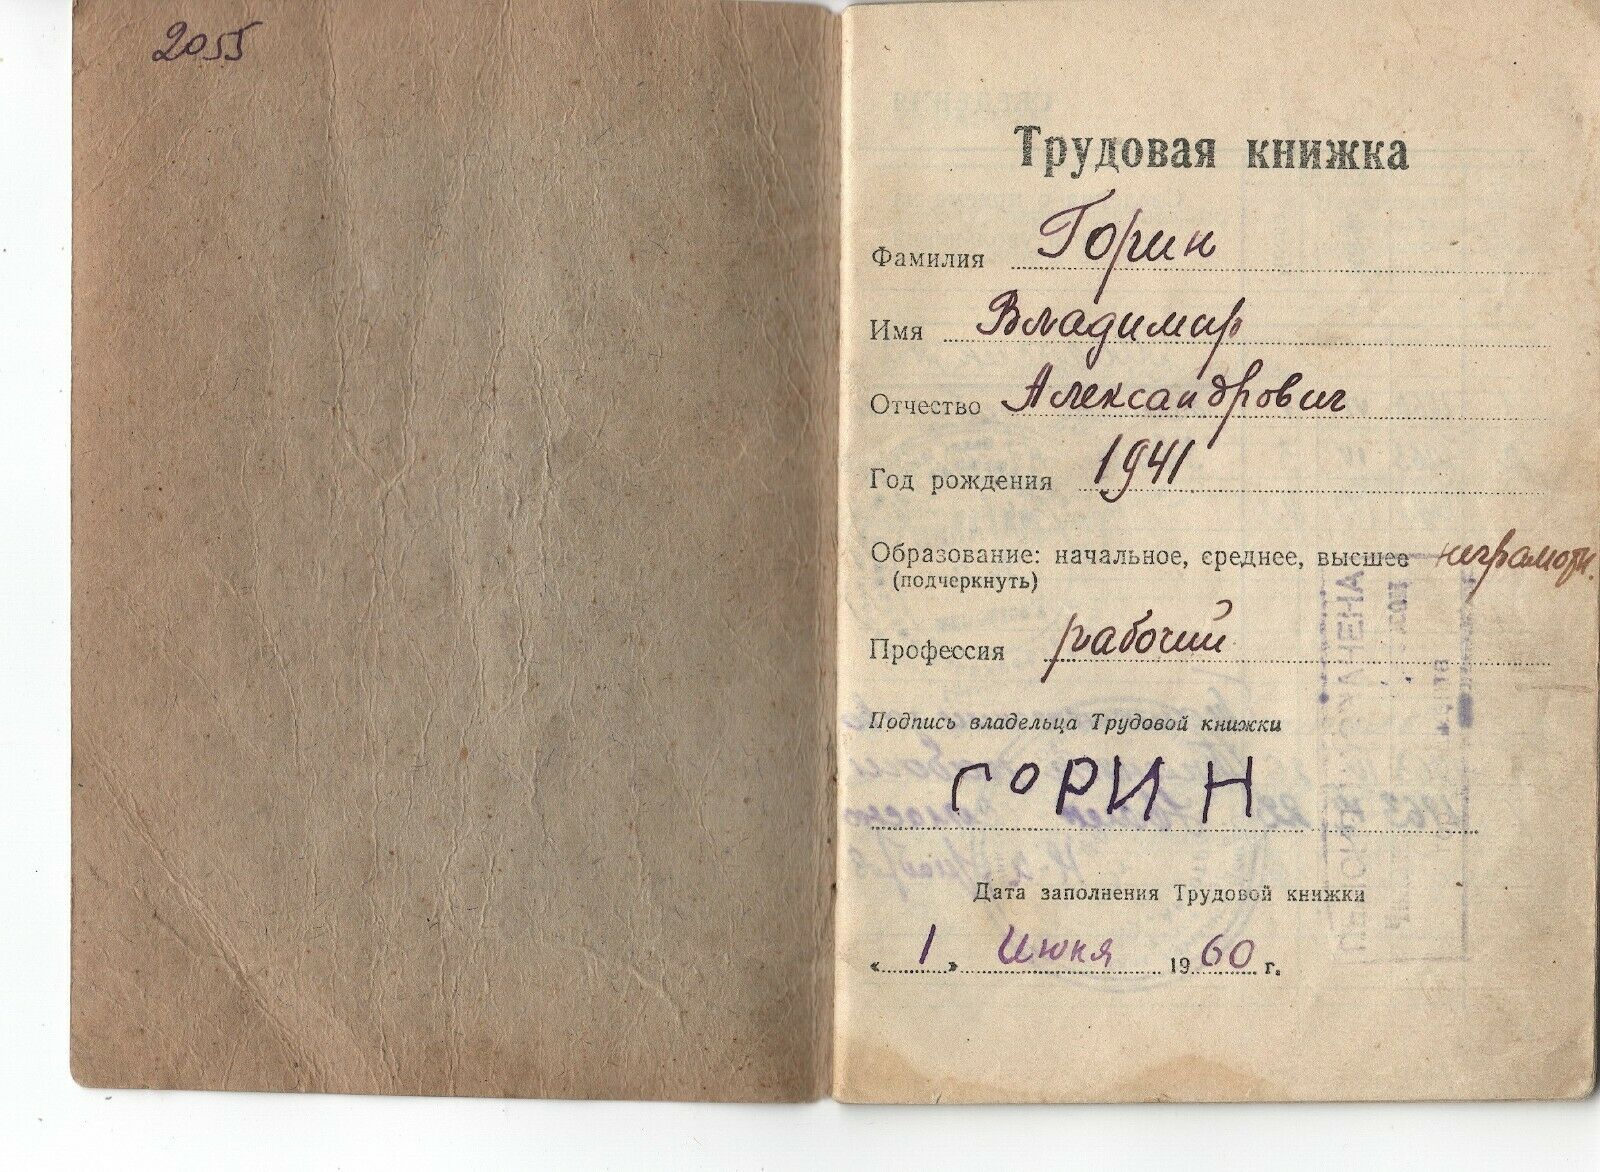 2055
Трудовая книжка
Фамилия Горин
Имя Владимир
Отчество Александрович
Год рождения 1941
Образование: начальное, среднее, высшее неграмотн.
(подчеркнуть)
Профессия рабочий
Подпись владельца Трудовой книжки
ГОРИН
Дата заполнения Трудовой книжки
«1» Июня 1960 г.